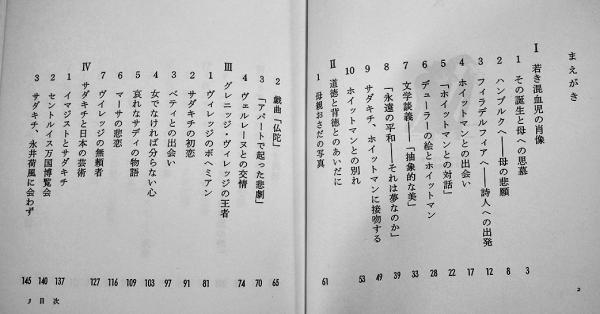 まえがき
Ⅰ 若き混血児の肖像
1 その誕生と母への思慕 3
2 ハンブルクへ——母の悲願 8
3 フィラデルフィアへ——詩人への出発 12
4 ホイットマンとの出会い 17
5 「ホイットマンとの対話」 22
6 デューラーの絵とホイットマン 28
7 文学談義——「抽象的な美」 33
8 「永遠の平和——それは夢なのか」 39
9 サダキチ、ホイットマンに接吻する 49
10 ホイットマンとの別れ 53
Ⅱ 道徳と背徳とのあいだに
1 母親おさだの写真 61
2
2 戯曲「仏陀」 65
3 「アパートで起った悲劇」 70
4 ヴェルレーヌとの交情 74
Ⅲ グレニッジ・ヴィレッジの王者
1 ヴィレッジのボヘミアン 81
2 サダキチの初恋 91
3 ベティとの出会い 97
4 女でなければ分らない心 103
5 哀れなサディの物語 109
6 マーサの悲恋 116
7 ヴィレッジの無頼者 127
Ⅳ サダキチと日本の芸術
1 イマジストとサダキチ 137
2 セントルイス万国博覧会 140
3 サダキチ、永井荷風に会わず 145
3 目次